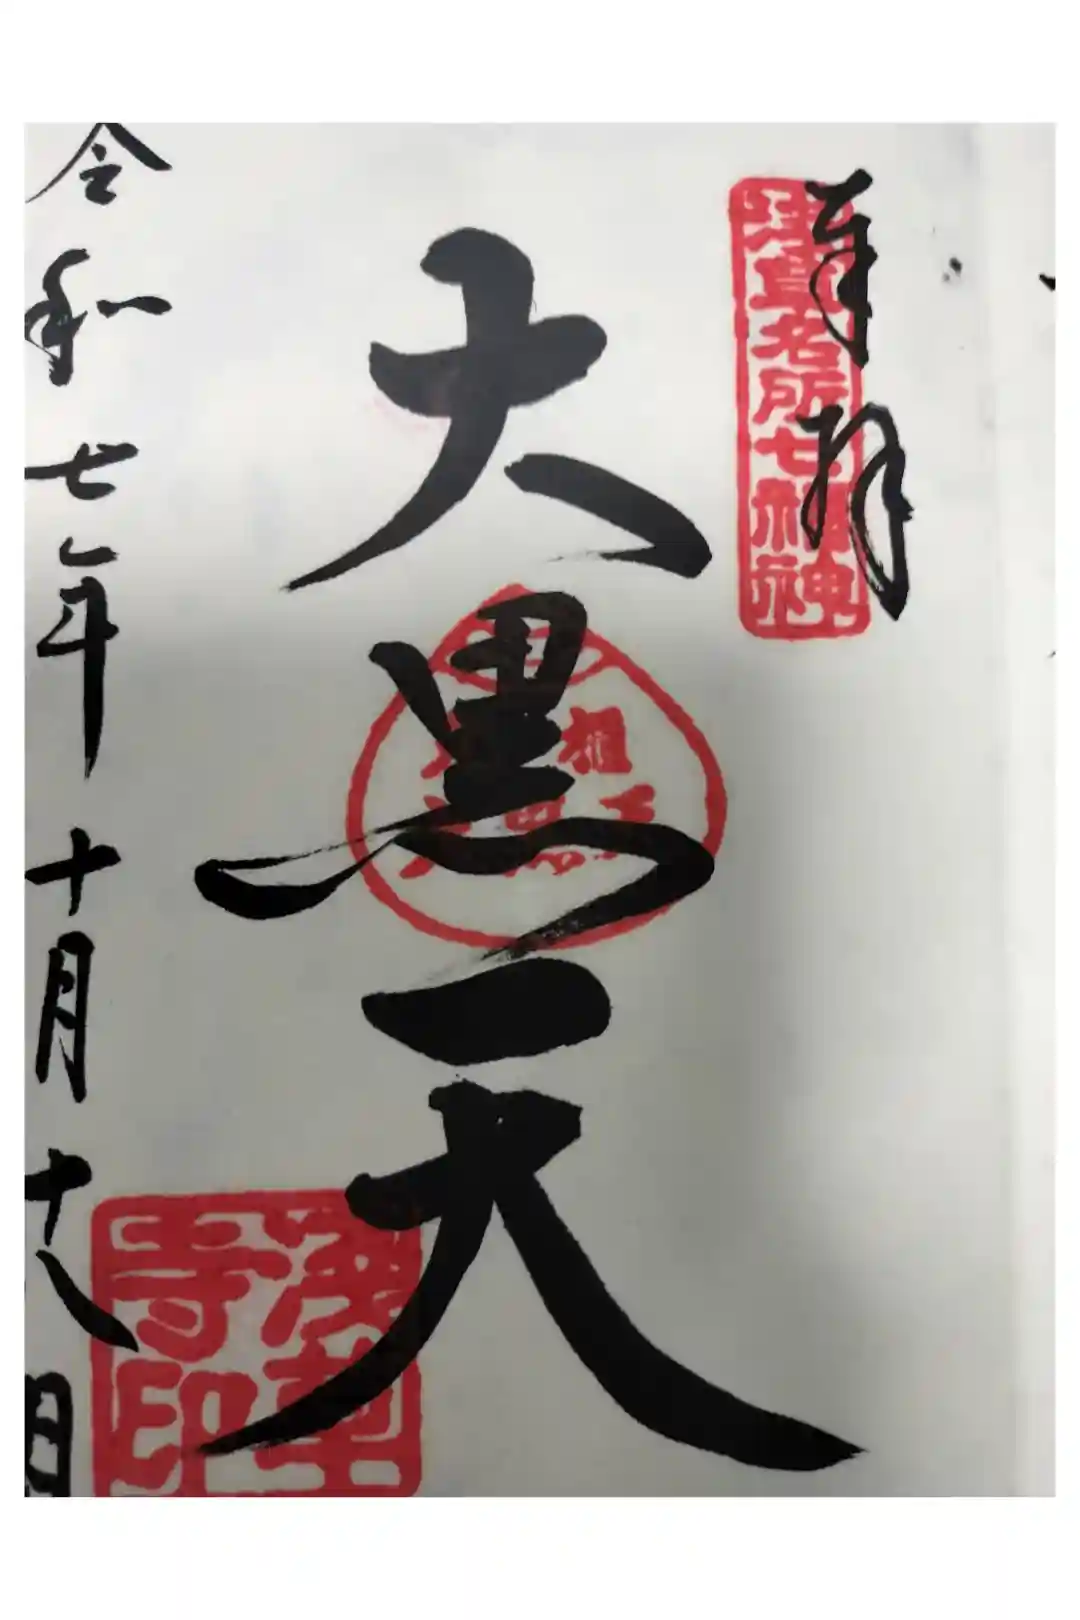 奉拝
浅草名所七福神
大黒天
浅草寺印
令和七年十月十八日